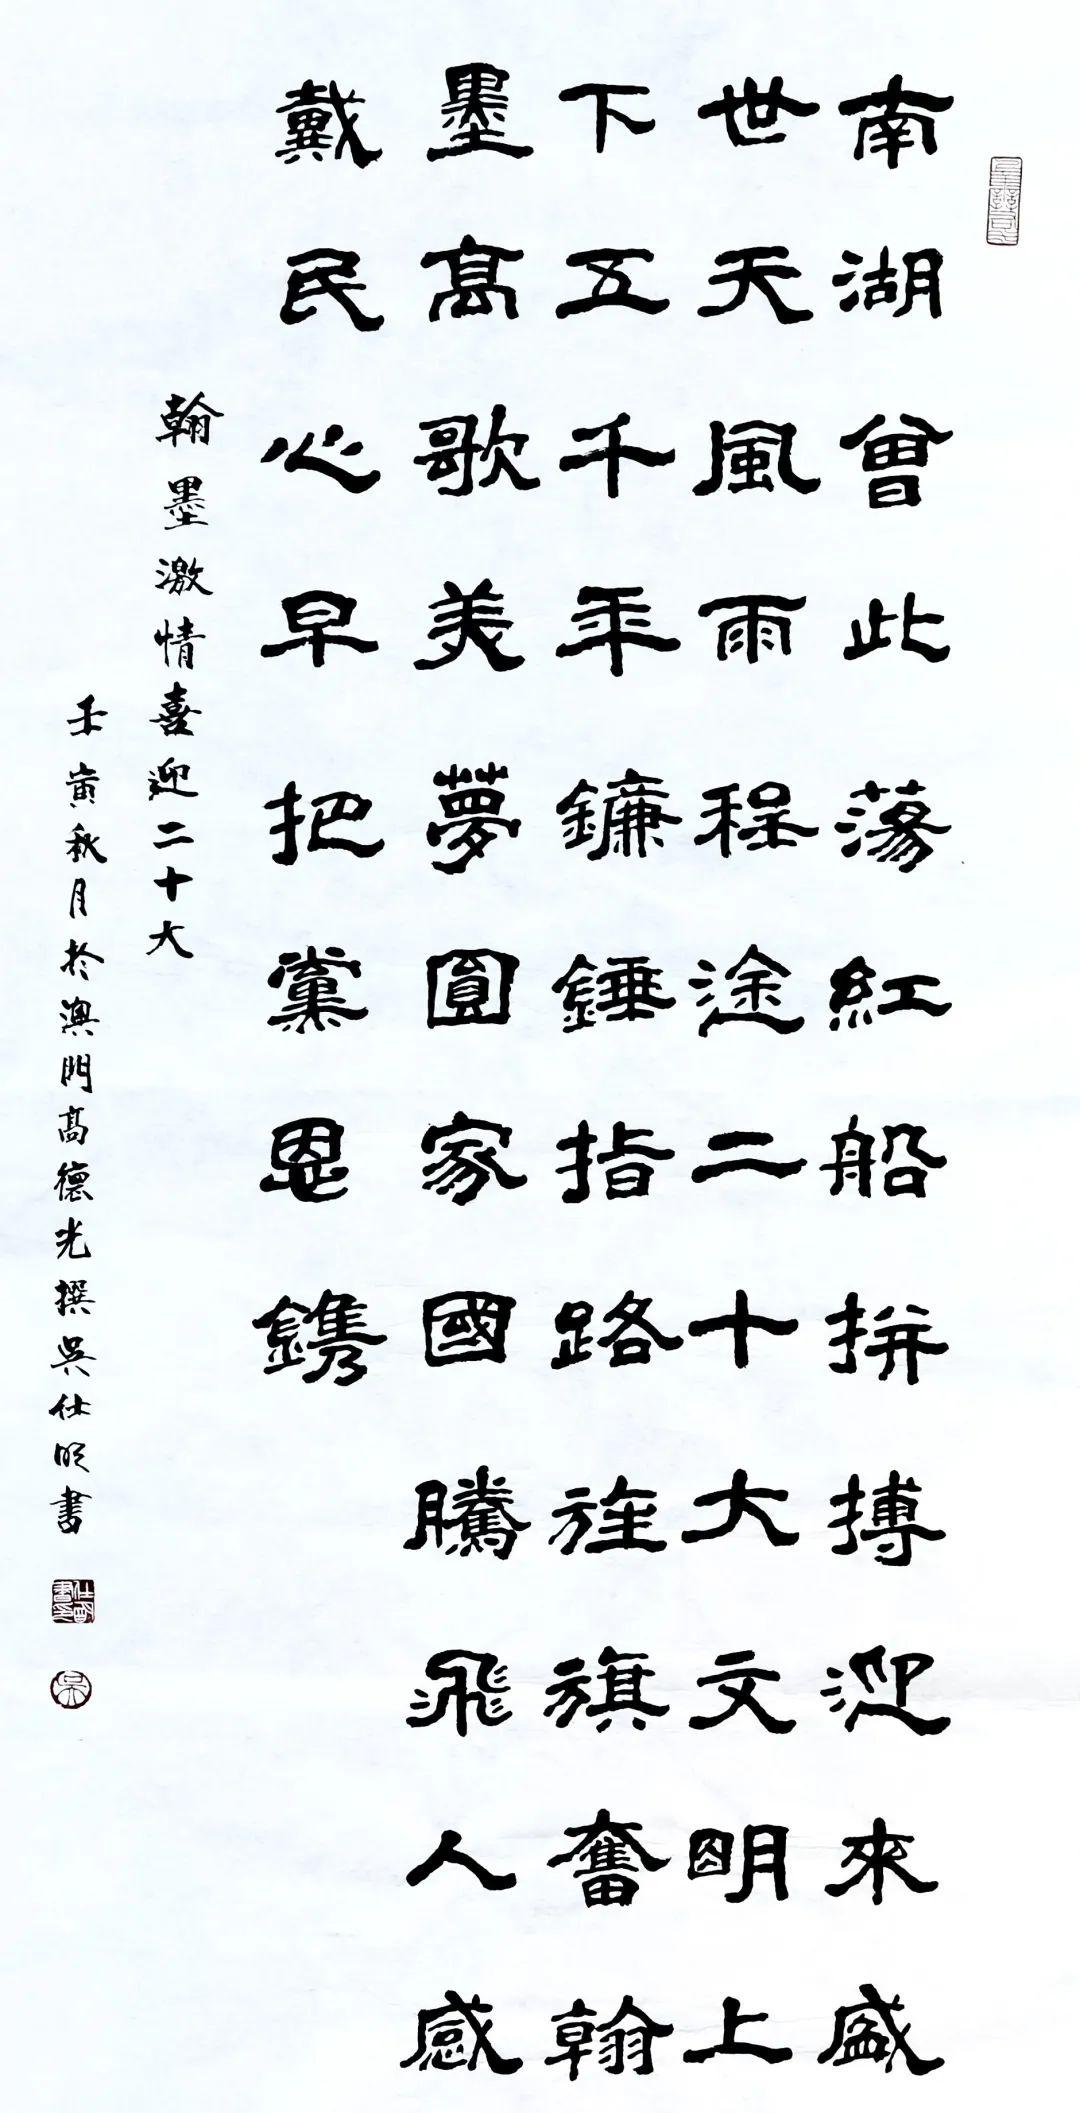 南湖曾此蕩紅船拚搏迎來盛
世天風雨程途二十大文明上
下五千年鐮錘指路旌旗奮翰
墨高歌美夢圓家國騰飛人感
戴民心早把黨恩鐫
翰墨激情喜迎二十大
壬寅秋月於澳門高德光撰吳仕明書
吳